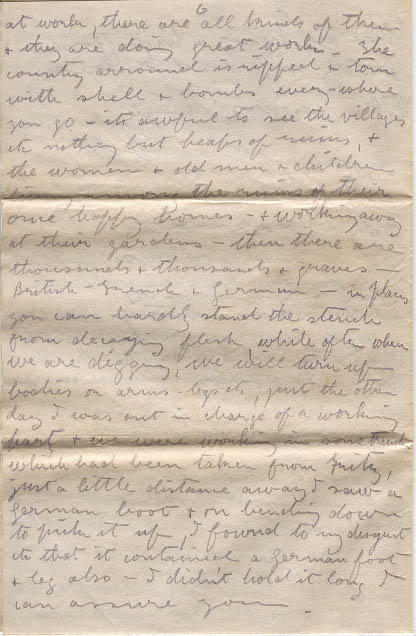 6
at work, there are all kinds of them
& they are doing great work. The
country arround is ripped & torn
with shell & bombs every-where
you go - its awful to see the villages
its nothing but heaps of ruins, &
the women & old men & children
living among the ruins of their
once happy homes - & working away
at their gardens - then there are
thousands & thousands & graves -
British - French & German - in places
you can hardly stand the stench
from decaying flesh while often when
we are digging, we will turn up
bodies or arms legs etc, just the other
day I was out in charge of a working
party & we were working in some trench
which had been taken from Fritz,
just a little distance away I saw a
German boot & on bending down
to pick it up, I found to my disgust
that it contained a German foot
& leg also - I didn't hold it long I
can assure you.